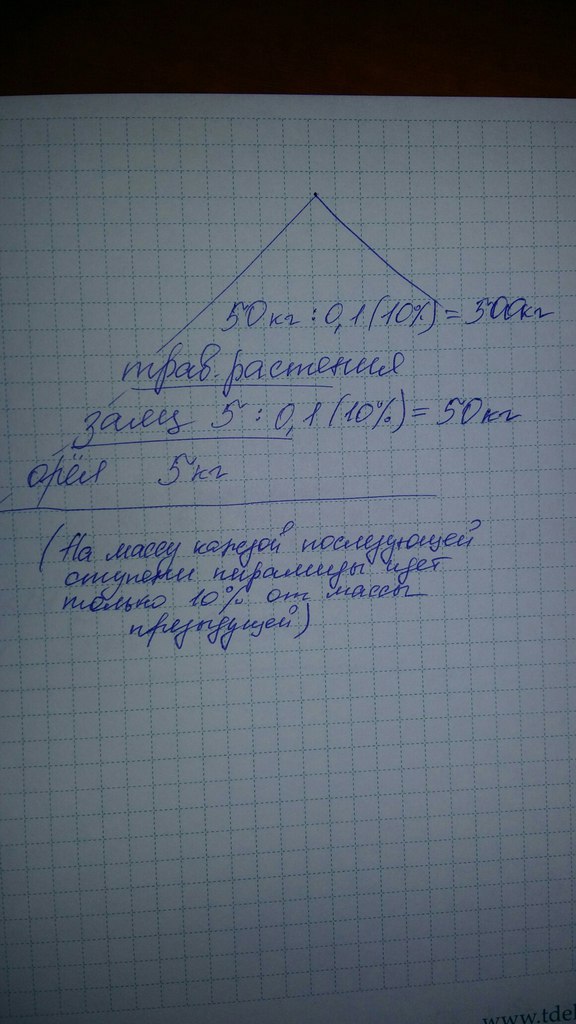 50кг : 0,1 (10%) = 500кг
трав. растения
заяц 5 : 0,1 (10%) = 50кг
орёл 5кг
(На массу каждой последующей
ступени пирамиды идет
только 10% от массы
предыдущей)
www.tdel